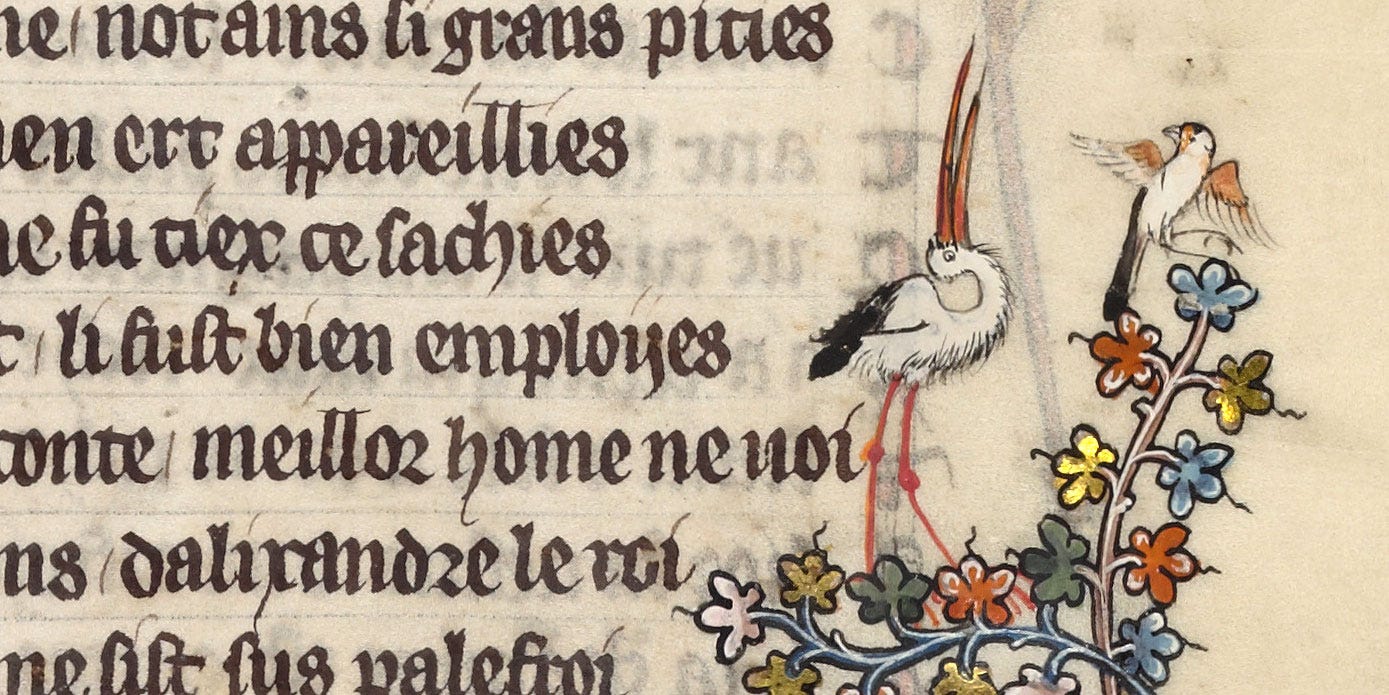 ne not ains si grans pities
en ert appareillies
ne fu tiex ce sachies
t li fust bien emploijes
conte meillor home ne uoi
ns dalixandre le roi
ne sist sus palefroi